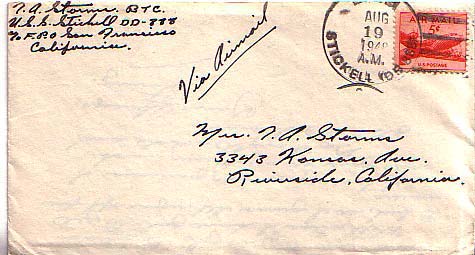 T.A. Storms. BTC.
U.S.S. Stickell DD-888
℅ F.P.O San Francisco
California.
Via Airmail
AUG
19
A.M.
STICKELL
AIR MAIL
5¢
U.S. POSTAGE
Mrs. T. A. Storms
3343 Kansas, Ave.
Riverside, California.